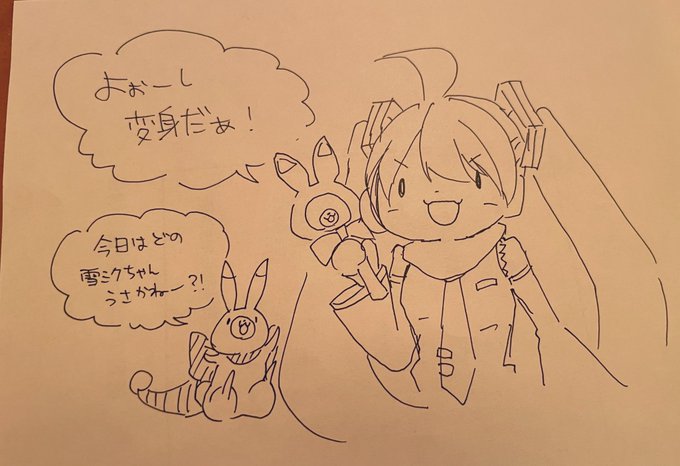 よぉーし
変身だぁ!
今日はどの
雪ミクちゃん
うさかねー?!